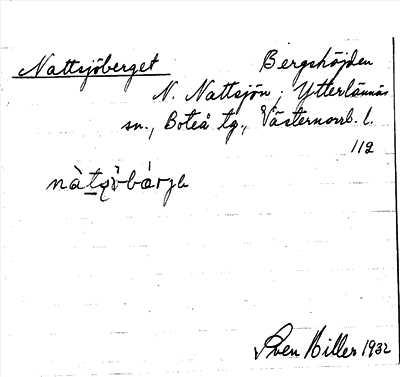 Nattsjöberget Bergshöjden
N. Nattsjön; Ytterlännäs
sn., Boteå tg., Västernorrl. l.
112
Sven Hiller 1932